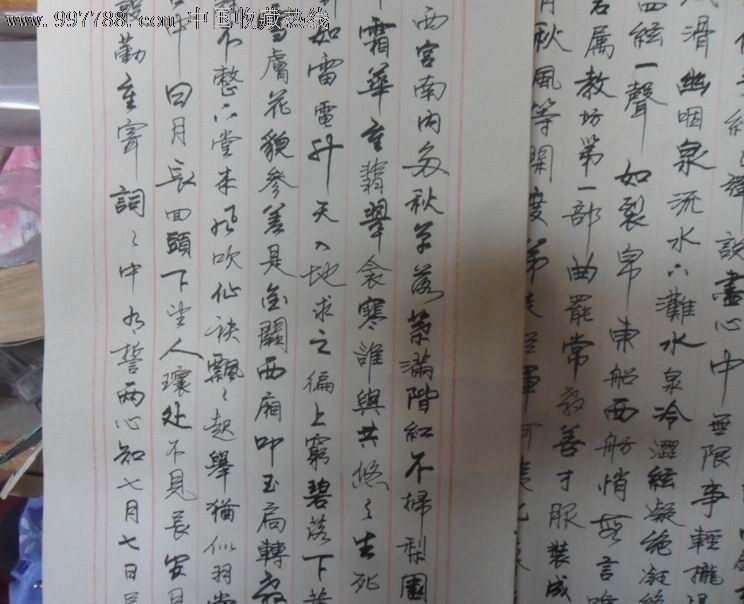 www.997788.com 中国收藏热线
彈説盡心中無限事輕攏
滑幽咽泉流水下灘水泉冷澀絃凝绝凝绝
四絃一聲如裂帛東船西舫悄無言唯
名属教坊第一部曲罷常教善才服裝成
月秋風等閑度弟走從軍阿姨死
西宮南内多秋草落葉滿階紅不掃梨園
霜華重翡翠衾寒誰與共悠々生死
如雷電升天入地求之徧上窮碧落下黄
雪膚花貌參差是金闕西廂叩玉扃轉教
不整下堂来風吹仙袂飄々起舉猶似羽裳
中日月長回頭下望人寰处不見長安見
殷勤重寄詞々中有誓两心知七月七日長